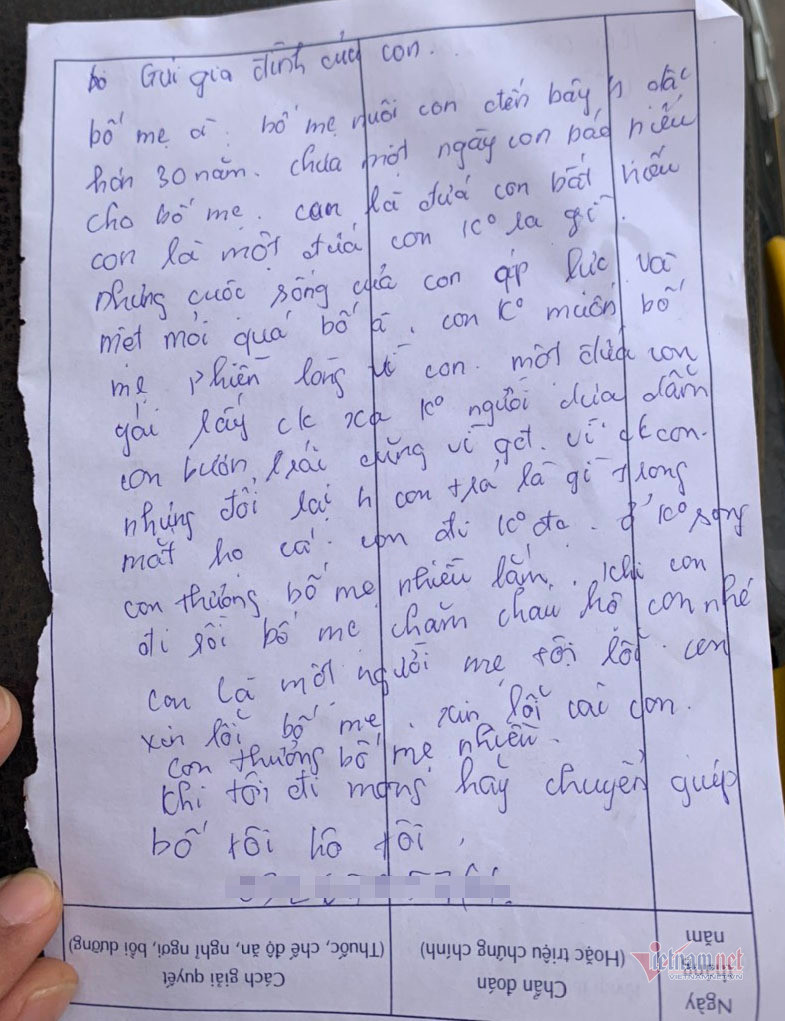 Gửi gia đình của con.
bố mẹ à. bố mẹ nuôi con đến bây h đã
hơn 30 năm. chưa một ngày con báo hiếu
cho bố mẹ. con là đứa con bất hiếu
con là một đứa con k° ra gì.
nhưng cuộc sống của con áp lực và
mệt mỏi quá bố à. con k° muốn bố
mẹ phiền lòng vì con. một đứa con
gái lấy ck xa k° người đưa đám
con buôn, cũng vì vì ck con.
nhưng đổi lại h con trả là gì trong
mắt họ cả. con đi k° đc. ở k° song
con thương bố mẹ nhiều lắm. khi con
đi rồi bố mẹ chăm cháu hộ con nhé
con là một người mẹ tội lỗi. con
xin lỗi bố mẹ. xin lỗi các con.
con thương bố mẹ nhiều.
khi tôi đi mong hãy chuyển guép
bố tôi hộ tôi.
Ngày tháng năm
Chẩn đoán
(Hoặc triệu chứng chính)
Cách giải quyết
(Thuốc, chế độ ăn, nghỉ ngơi, bồi dưỡng)
vietnamnet
VIETNAMNET.VN